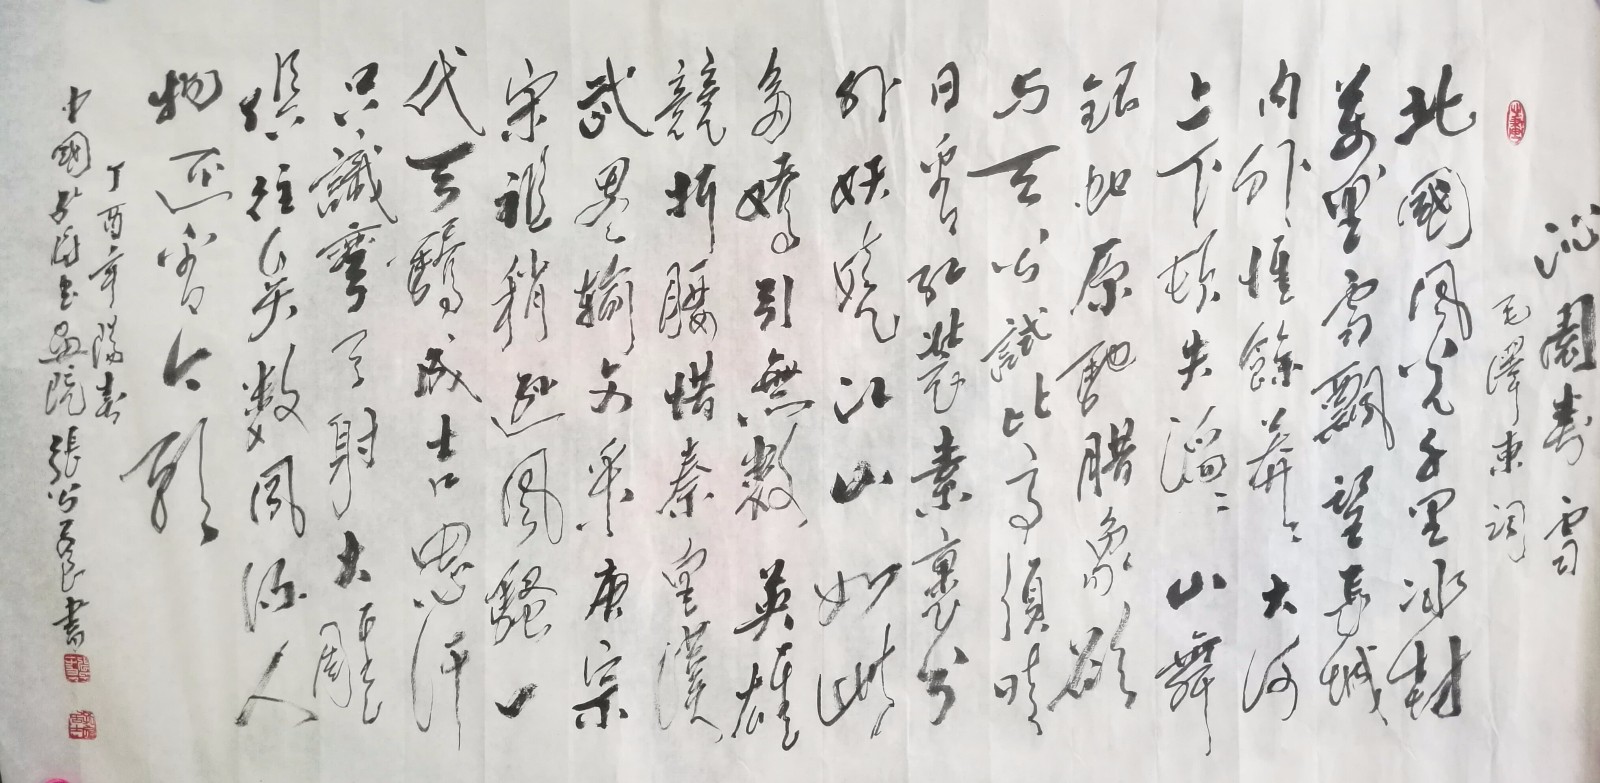 沁園春 雪
毛澤東詞
北國風光千里冰封
萬里雪飄望長城
内外惟餘莽〻大河
上下頓失滔〻山舞
銀蛇原馳腊象欲
与天公試比高須晴
日看紅裝素裹分
外妖嬈江山如此
多嬌引無數英雄
競折腰惜秦皇漢
武畧輸文采唐宗
宋祖稍遜風騷一
代天驕成吉思汗
只識彎弓射大雕
俱往矣數風流人
物還看今朝
丁酉年陽春
中國書畫院張書